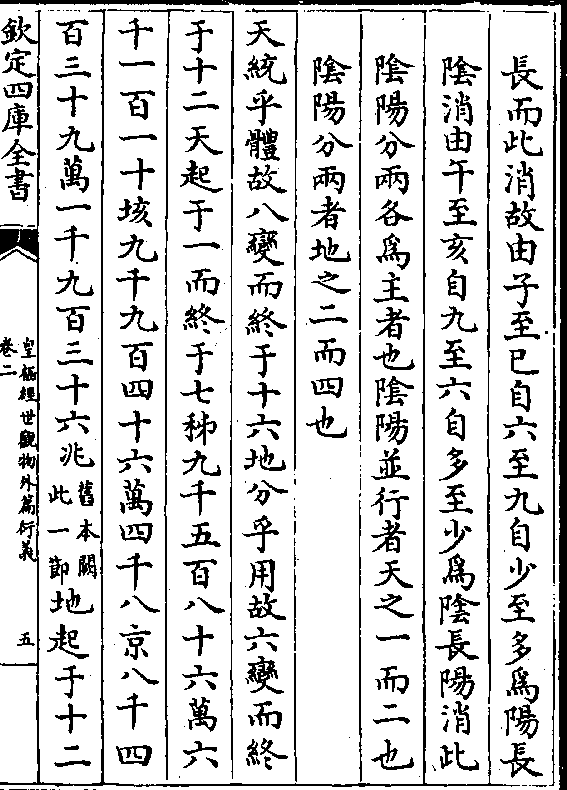 長而此消故由子至巳自六至九自少至多為陽長
陰消由午至亥自九至六自多至少為陰長陽消此
陰陽分兩各為主者也陰陽並行者天之一而二也
陰陽分兩者地之二而四也
天統乎體故八變而終于十六地分乎用故六變而終
于十二天起于一而終于七秭九千五百八十六萬六
千一百一十垓九千九百四十六萬四千八京八千四
百三十九萬一千九百三十六兆舊本闕此一節地起于十二
欽定四庫全書
皇極經世觀物外篇衍義
卷二
五